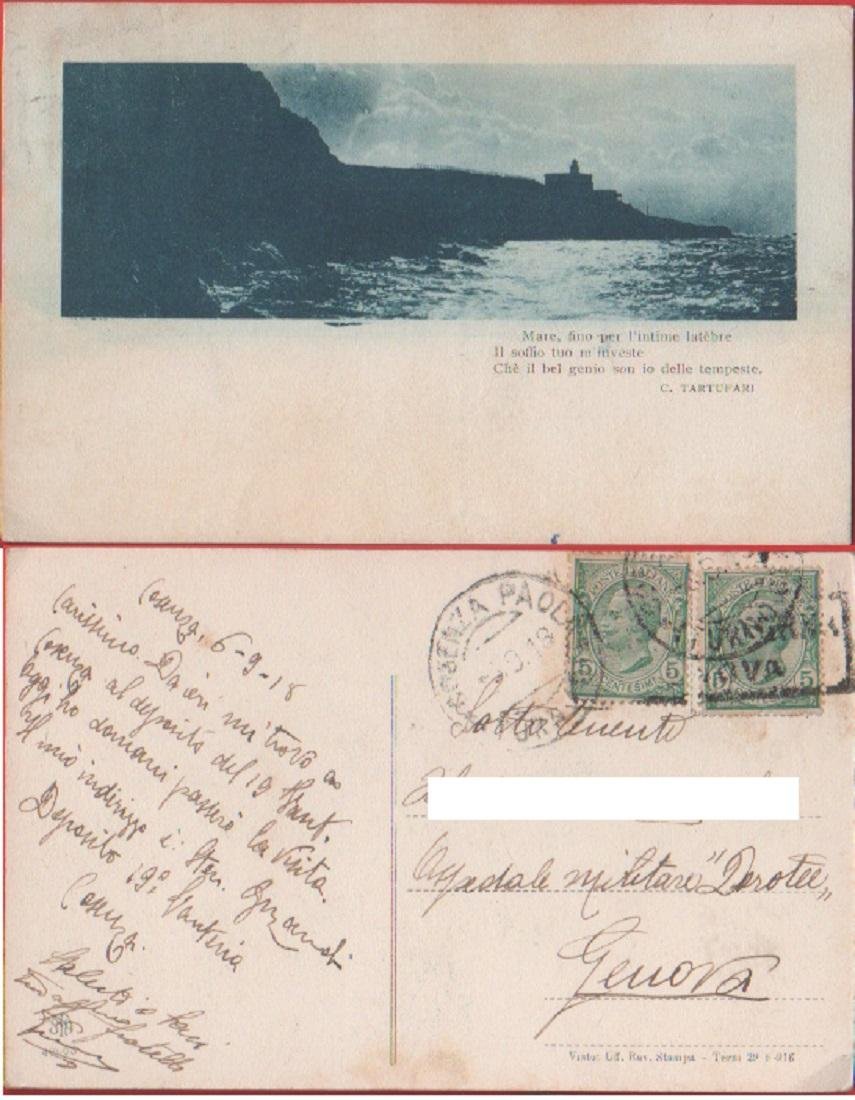 Mare, fino per l'intime latèbre
Il soffio tuo m'investe
Chè il bel genio son io delle tempeste.
C. TARTUFARI
Cosenza, 6-9-18
Carissimo. Da ieri mi trovo a
Cosenza al deposito del 19 Fant.
Oggi ho domani passerò la visita.
Il mio indirizzo è: Sten.
Deposito 19º Fanteria
Cosenza.
Saluti e baci
tuo fratello
COSENZA PAOLA
9.18
POSTE ITALIANE
5 5
CENTESIMI
5
Sottotenente
Ospedale militare "Dorotee"
Genova
Visto: Uff. Rev. Stampa - Terni 29 6-916